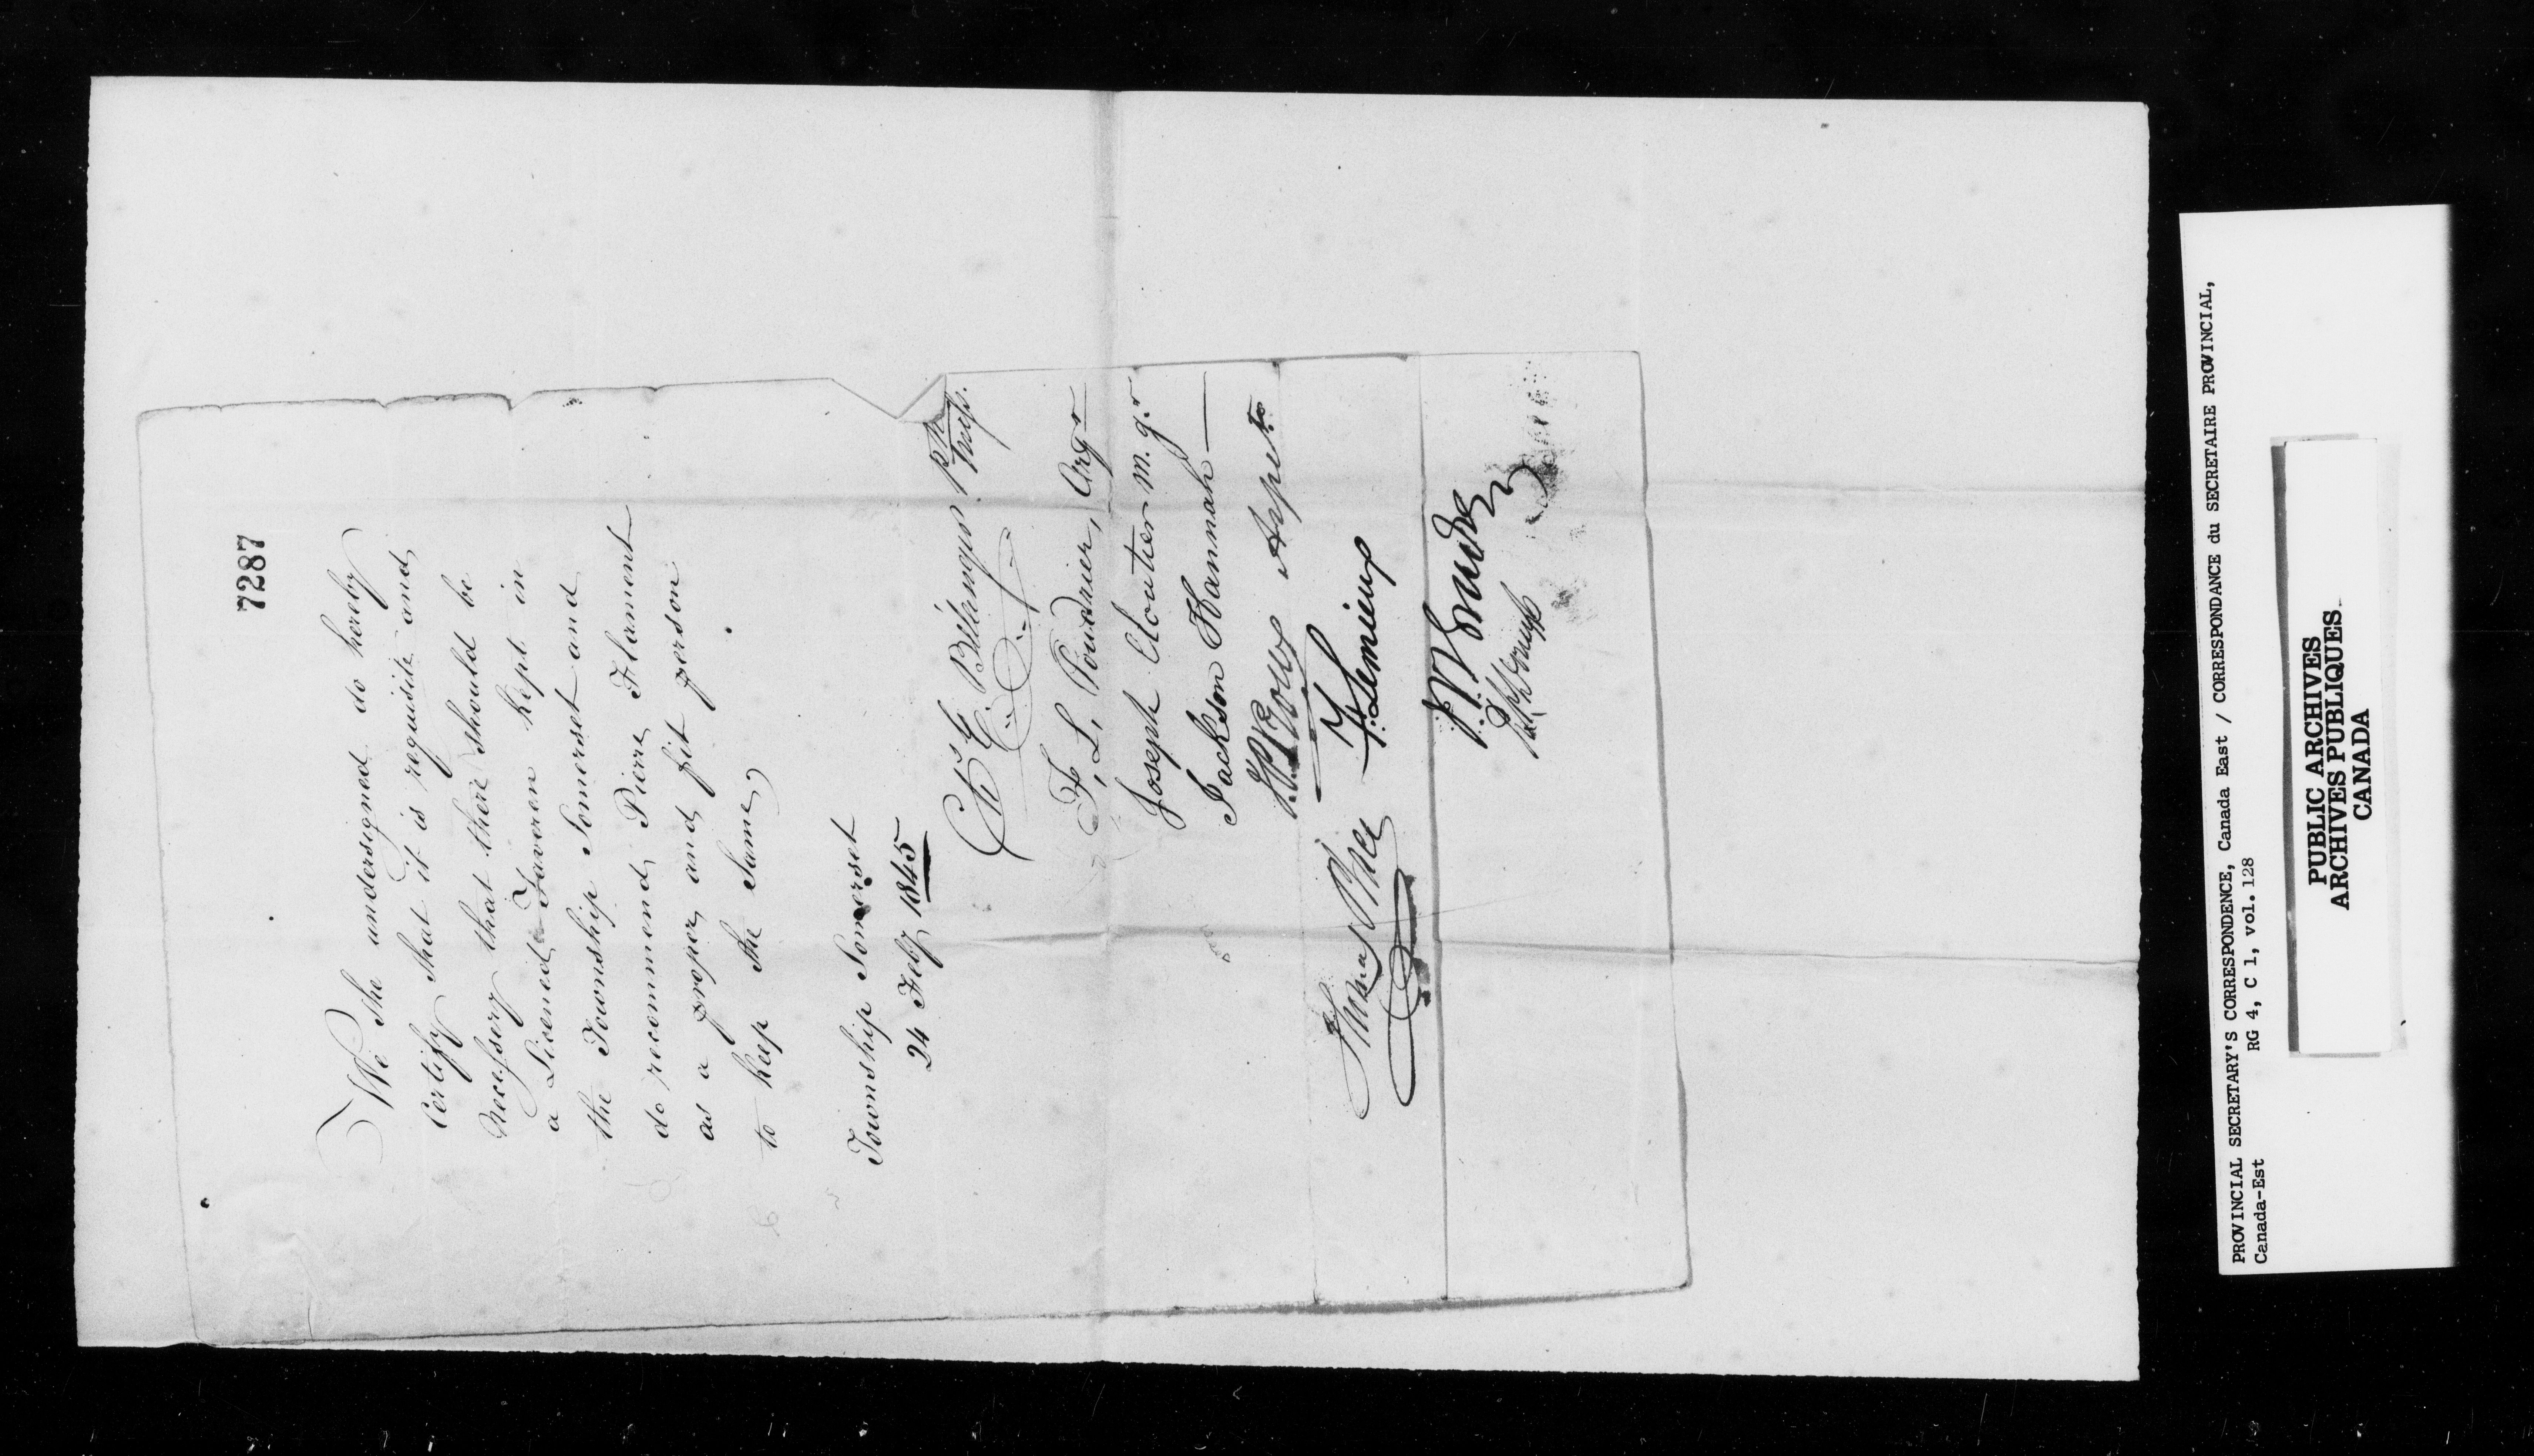 7287
We the undersigned do hereby
Certify that it is requisite and
Necessery that there should be
a Licened Tavern kept in
the Township Somerset and
do recommend Pierre Flament
as a proper and fit person
to keep the Same
Township Somerset
24 Feby 1845
Chs E. Bélanger Ptre Miss.
F. L. Poudrier, Arpr
Joseph Cloutier m. gr
Jackson Hannah
Roux
F. Lemieux
Thomas
PROVINCIAL SECRETARY'S CORRESPONDENCE, Canada East / CORRESPONDANCE du SECRETAIRE PROVINCIAL,
Canada-Est RG 4, C 1, vol. 128
PUBLIC ARCHIVES
ARCHIVES PUBLIQUES
CANADA